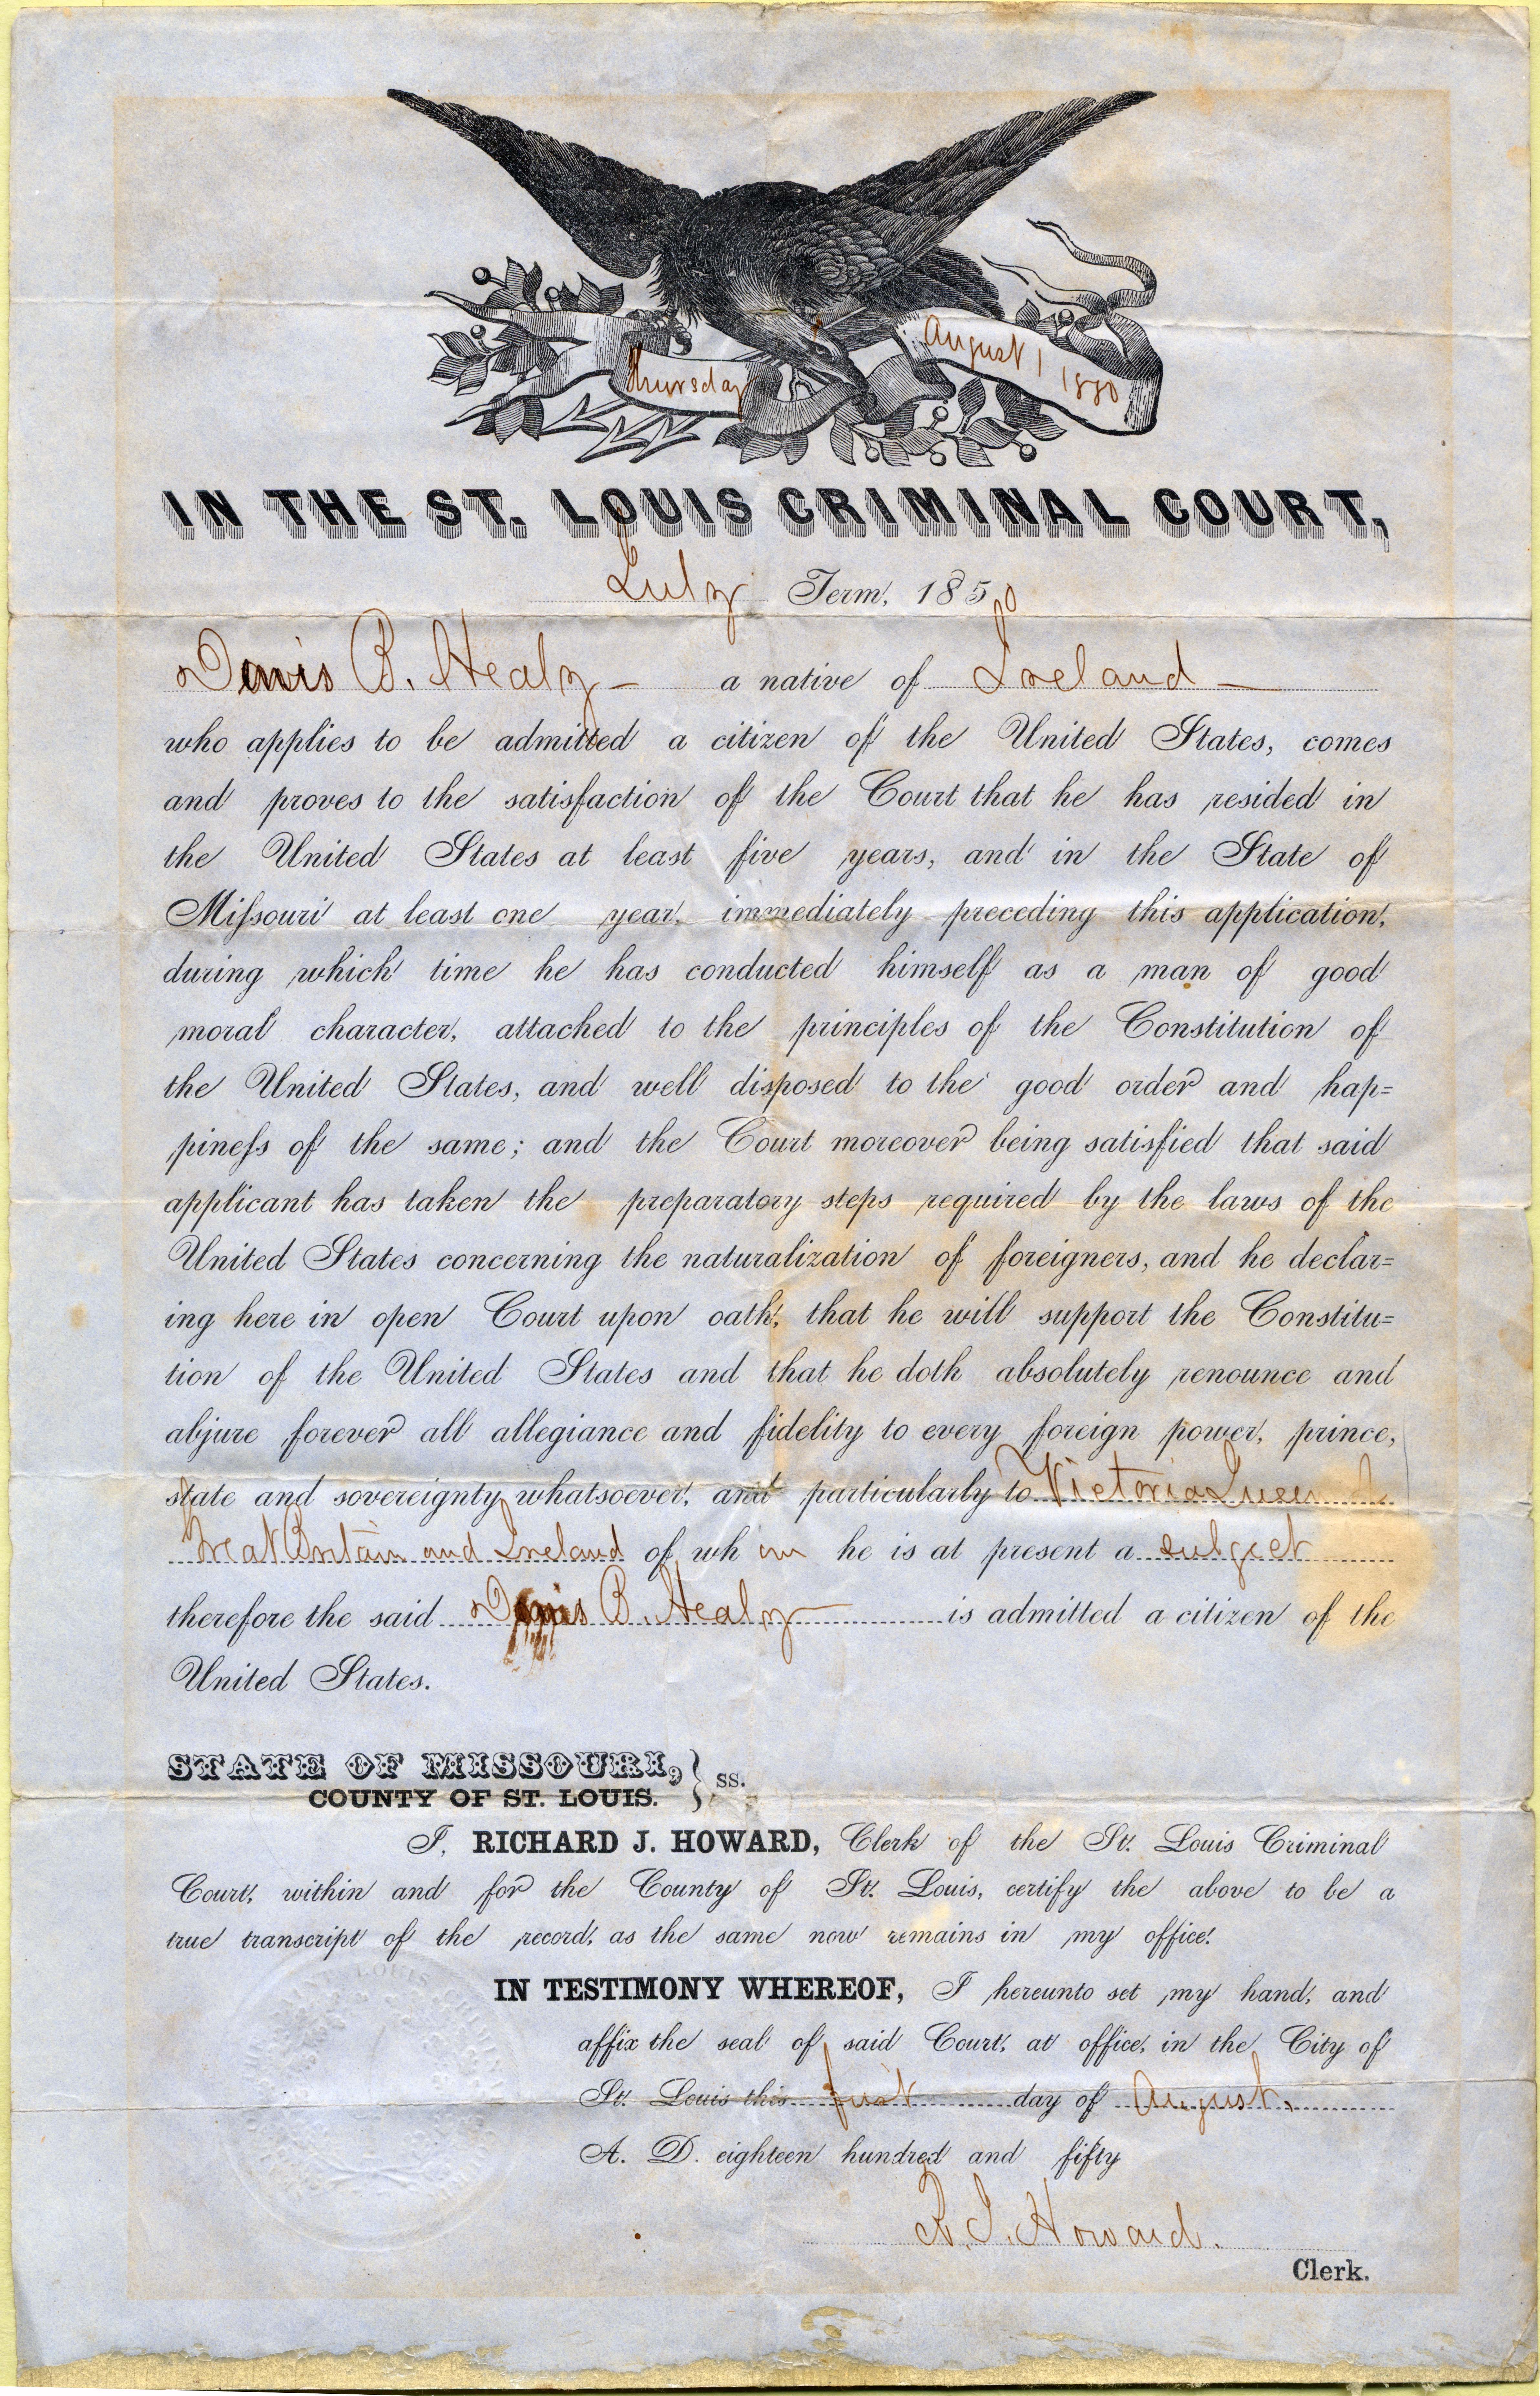 Thursday August 1 1850
IN THE ST. LOUIS CRIMINAL COURT,
July Term, 1850
Denis B. Healy — a native of Ireland —
who applies to be admitted a citizen of the United States, comes
and proves to the satisfaction of the Court that he has resided in
the United States at least five years, and in the State of
Mißouri at least one year, immediately preceding this application,
during which time he has conducted himself as a man of good
moral character, attached to the principles of the Constitution of
the United States, and well disposed to the good order and hap=
pineß of the same; and the Court moreover being satisfied that said
applicant has taken the preparatory steps required by the laws of the
United States concerning the naturalization of foreigners, and he declar=
ing here in open Court upon oath, that he will support the Constitu=
tion of the United States and that he doth absolutely renounce and
abjure forever all allegiance and fidelity to every foreign power, prince,
state and sovereignty whatsoever, and particularly to Victoria Queen of
Great Britain and Ireland of wh om he is at present a subject
therefore the said Denis B. Healy — is admitted a citizen of the
United States.
STATE OF MISSOURI, } ss.
COUNTY OF ST. LOUIS.
I, RICHARD J. HOWARD, Clerk of the St. Louis Criminal
Court, within and for the County of St. Louis, certify the above to be a
true transcript of the record, as the same now remains in my office.
IN TESTIMONY WHEREOF, I hereunto set my hand, and
affix the seal of said Court, at office, in the City of
St. Louis this first day of August,
A. D. eighteen hundred and fifty
R. J. Howard.
Clerk.